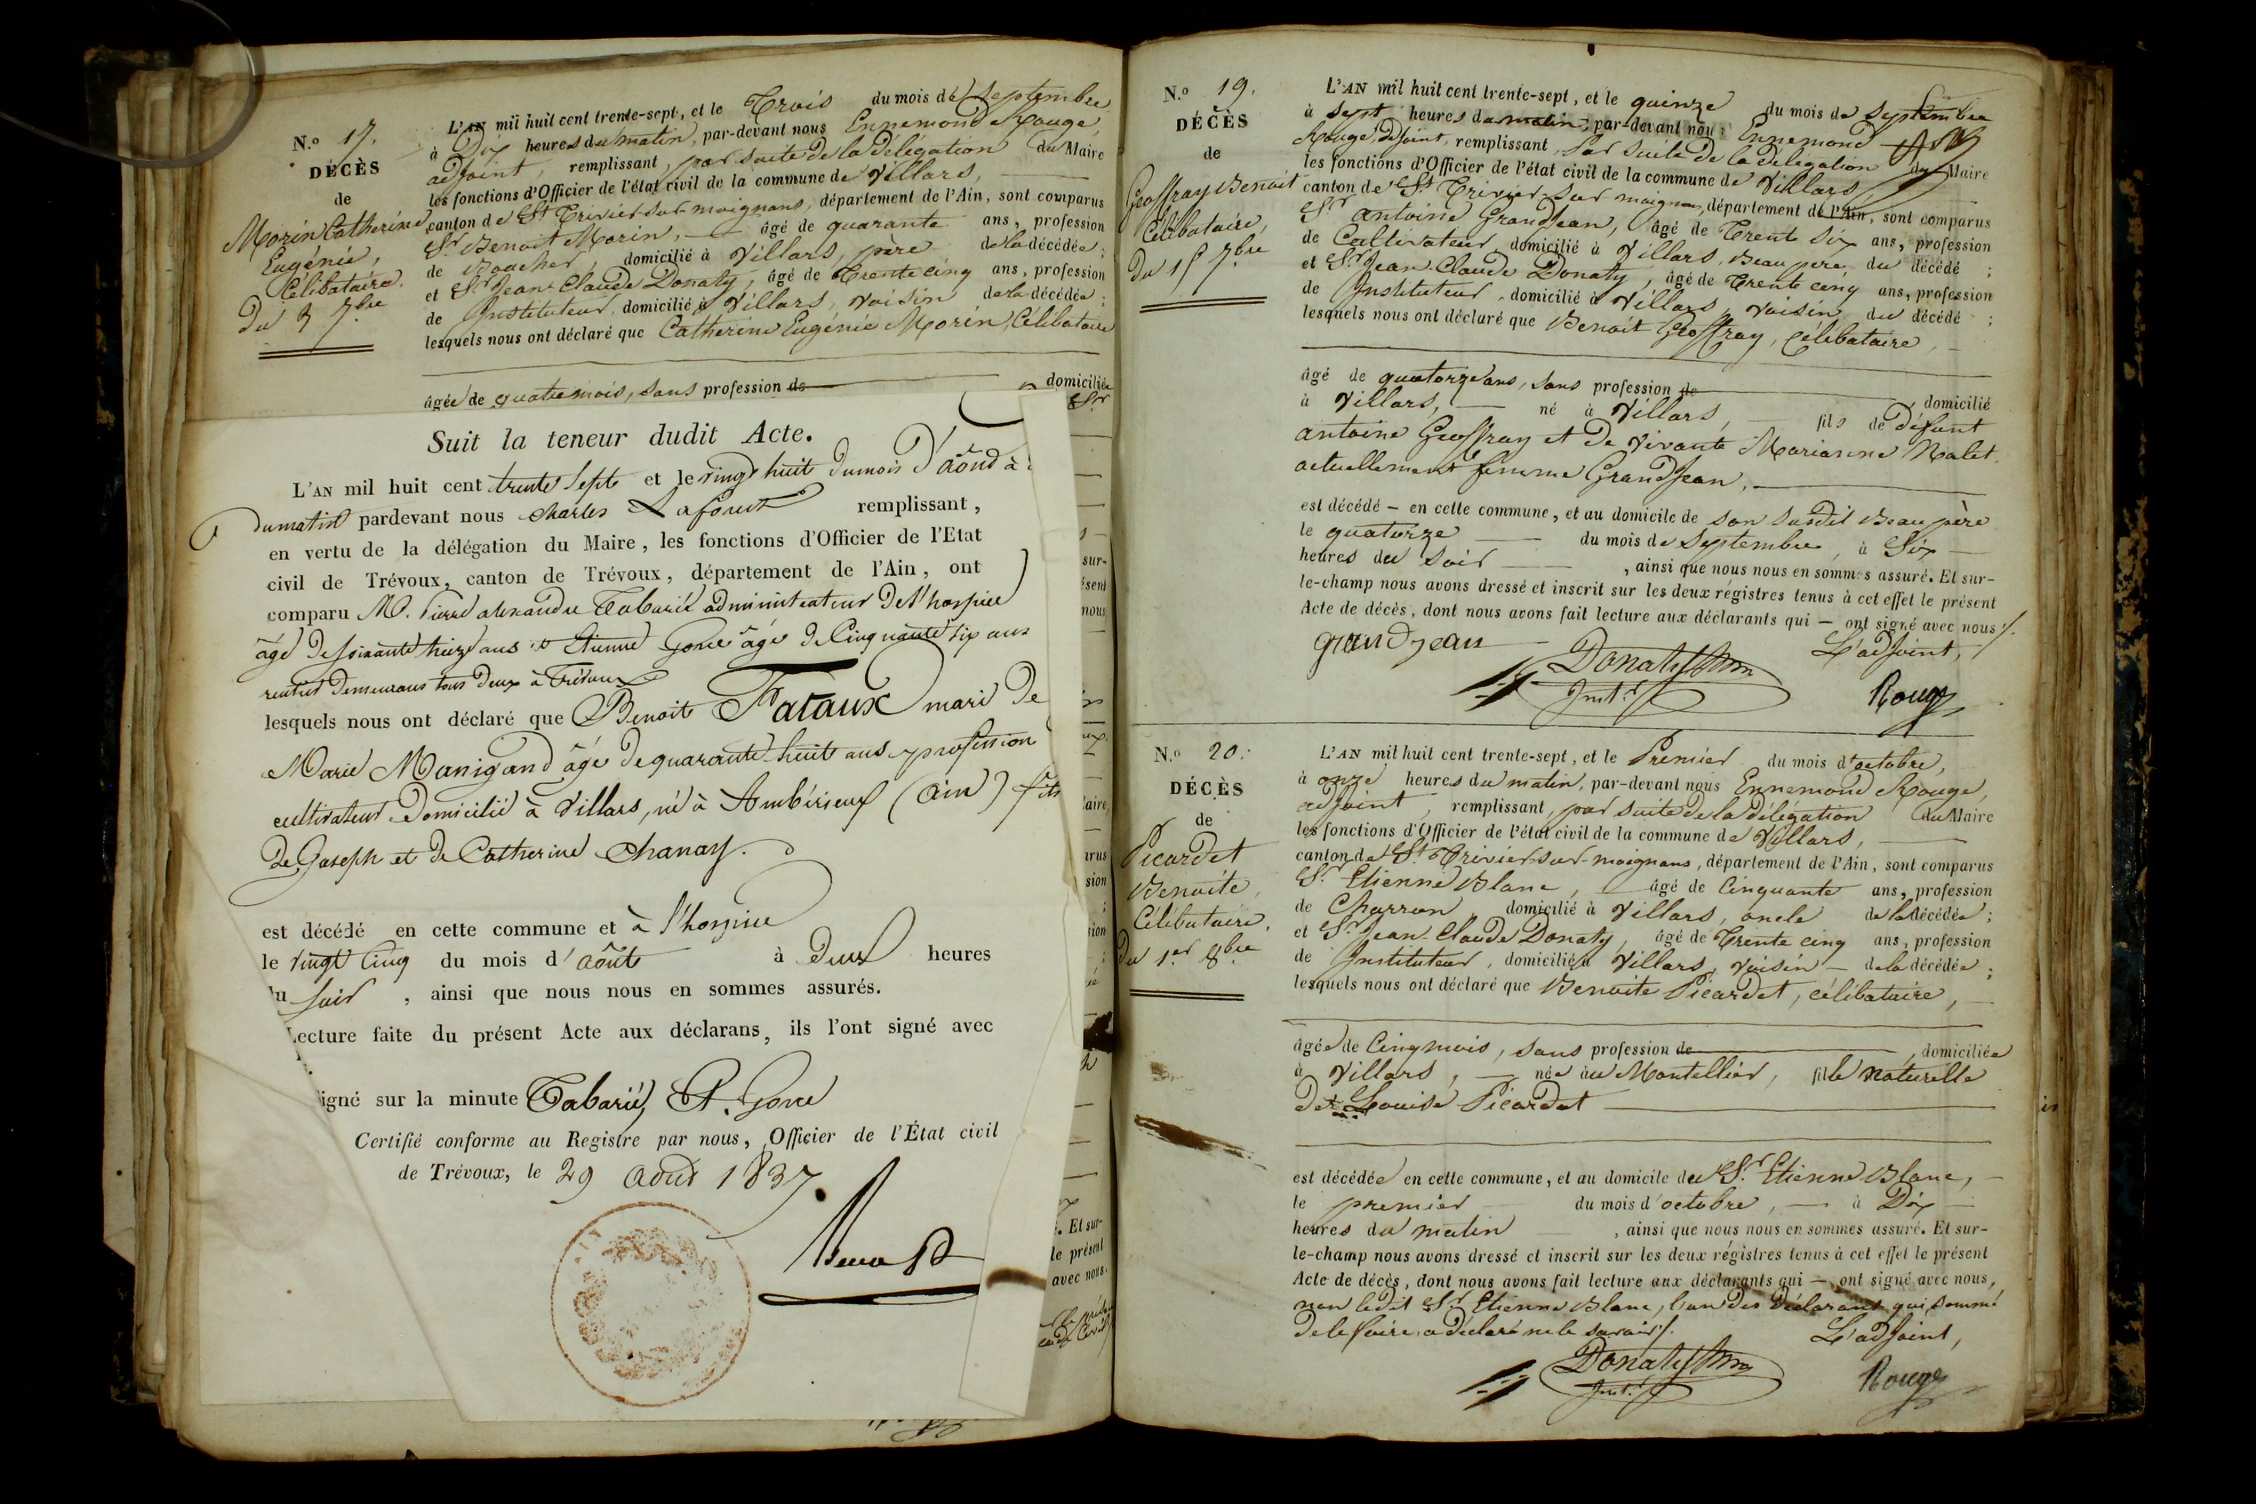 N.o 17.
DÉCÈS
de
Morin Catherine
Eugénie,
Célibataire.
Du 3 7.bre
L'AN mil huit cent trente-sept, et le Trois du mois de Septembre
à Dix heures du matin, par-devant nous Ennemond Rouge,
adjoint, remplissant, par suite de la délégation du Maire
les fonctions d'Officier de l'état civil de la commune de Villars,
canton de St Trivier-sur-moignans, département de l'Ain, sont comparus
Sr Benoit Morin, âgé de quarante ans, profession
de Boucher, domicilié à Villars, père de la décédée;
et Sr Jean-Claude Donaty, âgé de Trente cinq ans, profession
de Instituteur, domicilié à Villars, voisin de la décédée;
lesquels nous ont déclaré que Catherine Eugénie Morin, Célibataire
âgée de quatre mois, sans profession de domiciliée
Sr
Suit la teneur dudit Acte.
L'AN mil huit cent trente Sept et le vingt huit du mois D'aôud à
du matin pardevant nous Charles remplissant,
en vertu de la délégation du Maire, les fonctions d'Officier de l'Etat
civil de Trévoux, canton de Trévoux, département de l'Ain, ont
comparu M. Pierre alexandre Tabarié administrateur De l'hospice
âgé De soixante treize ans et Etienne Gonce âgé De Cinquante six ans
rentier Demeurans tous Deux à Trévoux
lesquels nous ont déclaré que Benoit Fataux mari De
Marie Manigand âgé De quarante-huit ans profession
cultivateur Domicilié à Villars, né à Ambérieux (ain) fils
De Joseph et De Catherine Chanay.
est décédé en cette commune et à l'hospice
le vingt Cinq du mois d'aôut à Deux heures
du soir, ainsi que nous nous en sommes assurés.
Lecture faite du présent Acte aux déclarans, ils l'ont signé avec
signé sur la minute Tabarié,
Certifié conforme au Registre par nous, Officier de l'État civil
de Trévoux, le 29 aout 1837.
sur-
présent
nous
Maire,
. Et sur-
le présent
avec nous.
N.o 19.
DÉCÈS
de
Geoffray Benoit
Célibataire,
Du 15 7.bre
L'AN mil huit cent trente-sept, et le quinze du mois de Septembre
à Sept heures du matin, par-devant nous Ennemond
Rouge adjoint, remplissant, Par suite De la délégation du Maire
les fonctions d'Officier de l'état civil de la commune de Villars,
canton de St Trivier-sur moignans, département de l'Ain, sont comparus
Sr antoine Grandjean, âgé de Trente Six ans, profession
de Cultivateur, domicilié à Villars, Beau père du décédé;
et Sr Jean-Claude Donaty, âgé de Trente cinq ans, profession
de Instituteur, domicilié à Villars, voisin du décédé;
lesquels nous ont déclaré que Benoit Geoffray, célibataire,
âgé de quatorze ans, sans profession de domicilié
à Villars, né à Villars, fils de Défunt
antoine Geoffray et De vivante Marianne Nalet
actuellement femme Grandjean.
est décédé – en cette commune, et au domicile de son susdit Beau père
le quatorze du mois de Septembre, à Six
heures du soir, ainsi que nous nous en sommes assuré. Et sur-
le-champ nous avons dressé et inscrit sur les deux régistres tenus à cet effet le présent
Acte de décès, dont nous avons fait lecture aux déclarants qui – ont signé avec nous /.
grandjean
L'adjoint,
Donaty
Inst.r
Rouge
N.o 20.
DÉCÈS
de
Picardet
Benoite,
Célibataire,
Du 1.er 8.bre
L'AN mil huit cent trente-sept, et le Premier du mois d'octobre,
à onze heures du matin, par-devant nous Ennemond Rouge,
adjoint, remplissant, par suite de la délégation du Maire
les fonctions d'Officier de l'état civil de la commune de Villars,
canton de St Trivier-sur-moignans, département de l'Ain, sont comparus
Sr Etienne Blanc, âgé de Cinquante ans, profession
de Charron, domicilié à Villars, oncle de la décédée;
et Sr Jean-Claude Donaty, âgé de Trente cinq ans, profession
de Instituteur, domicilié à Villars, voisin – de la décédée;
lesquels nous ont déclaré que Benoite Picardet, célibataire,
âgée de Cinq mois, sans profession de, domiciliée
à Villars, née au Montellier, fille naturelle
de Louise Picardet
est décédée en cette commune, et au domicile du Sr Etienne Blanc,
le premier du mois d'octobre, à Dix
heures du matin, ainsi que nous nous en sommes assuré. Et sur-
le-champ nous avons dressé et inscrit sur les deux régistres tenus à cet effet le présent
Acte de décès, dont nous avons fait lecture aux déclarants qui – ont signé avec nous,
non ledit Sr Etienne Blanc, l'un Des Déclarans qui sommé
De le faire, a déclaré ne le savoir /.
L'adjoint,
Donaty
Inst.r
Rouge